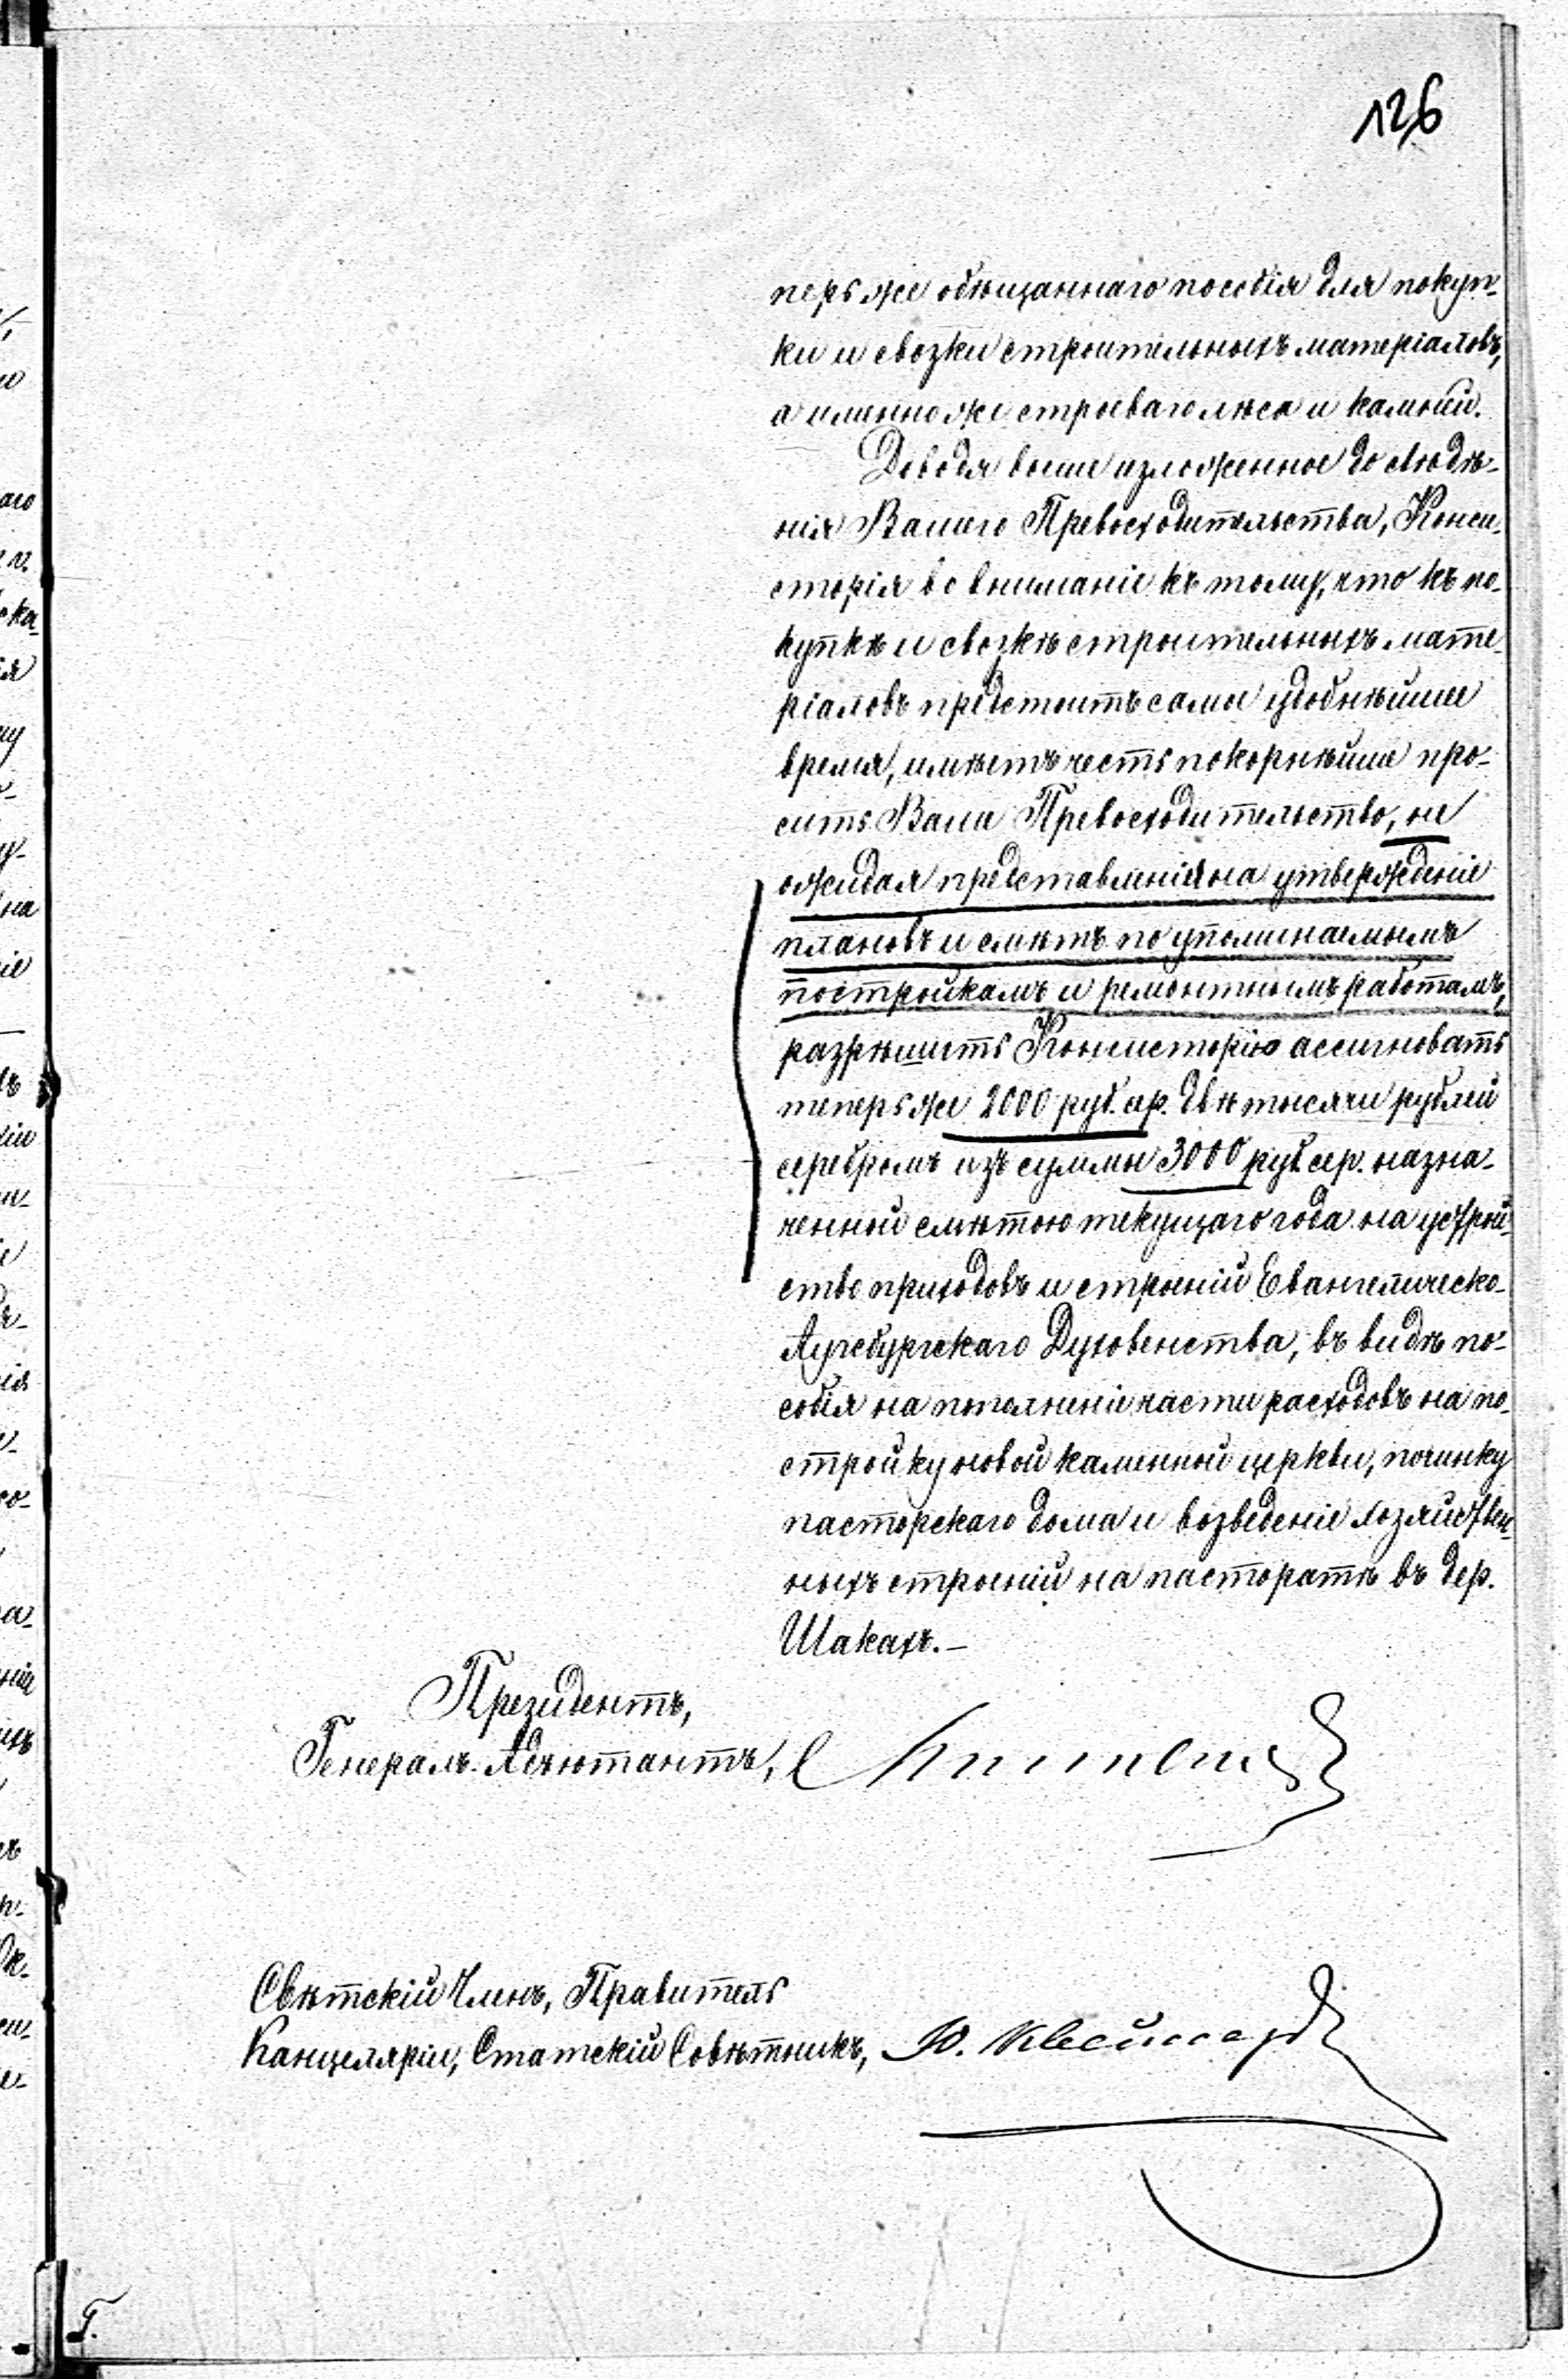 126
перь же обѣщаннаго пособія для покуп-
ки и свозки строительныхъ матеріаловъ,
а именно же строеваго лѣса и камній.
Доводя выше изложенное до свѣдѣ-
нія Вашего Превосходительства, Конси-
сторія во вниманіе къ тому, что къ по-
купкѣ и свозкѣ строительныхъ мате-
ріаловъ предстоитъ самое удобнѣйшее
время, имѣетъ честь покорнѣйше про-
сить Ваше Превосходительство, не
ожидая представленія на утвержденіе
плановъ и смѣтъ по упоминаемымъ
постройкамъ и ремонтнымъ работамъ,
разрѣшить Консисторію ассигновать
теперь же 2000 руб. сер. двѣ тысячи рублей
серебромъ изъ суммы 3000 руб. сер. назна-
ченной смѣтою текущаго года на устрой-
ство приходовъ и строеній Евангелическо-
Аугсбургскаго Духовенства, въ видѣ по-
собія на пополненіе части расходовъ на по-
стройку новой каменной церкви, починку
пасторскаго дома и возведеніе хозяйствен-
ныхъ строеній на пасторатѣ въ дер.
Шакахъ.—
Президентъ,
Генералъ-Адъютантъ,
Свѣтскій Членъ, Правитель
Канцеляріи, Статскій Совѣтникъ, Ю.